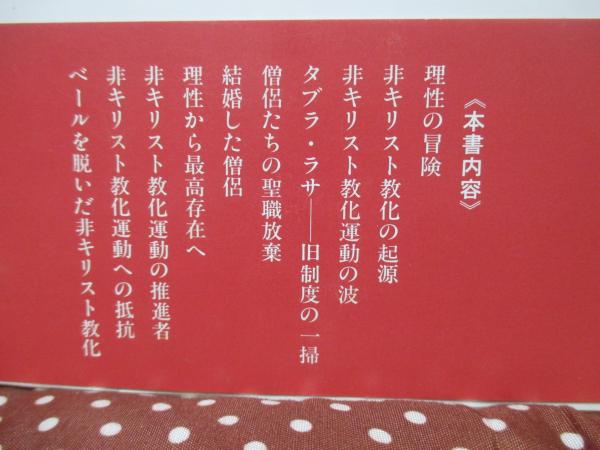 《本書内容》
理性の冒険
非キリスト教化の起源
非キリスト教化運動の波
タブラ・ラサ——旧制度の一掃
僧侶たちの聖職放棄
結婚した僧侶
理性から最高存在へ
非キリスト教化運動の推進者
非キリスト教化運動への抵抗
ベールを脱いだ非キリスト教化